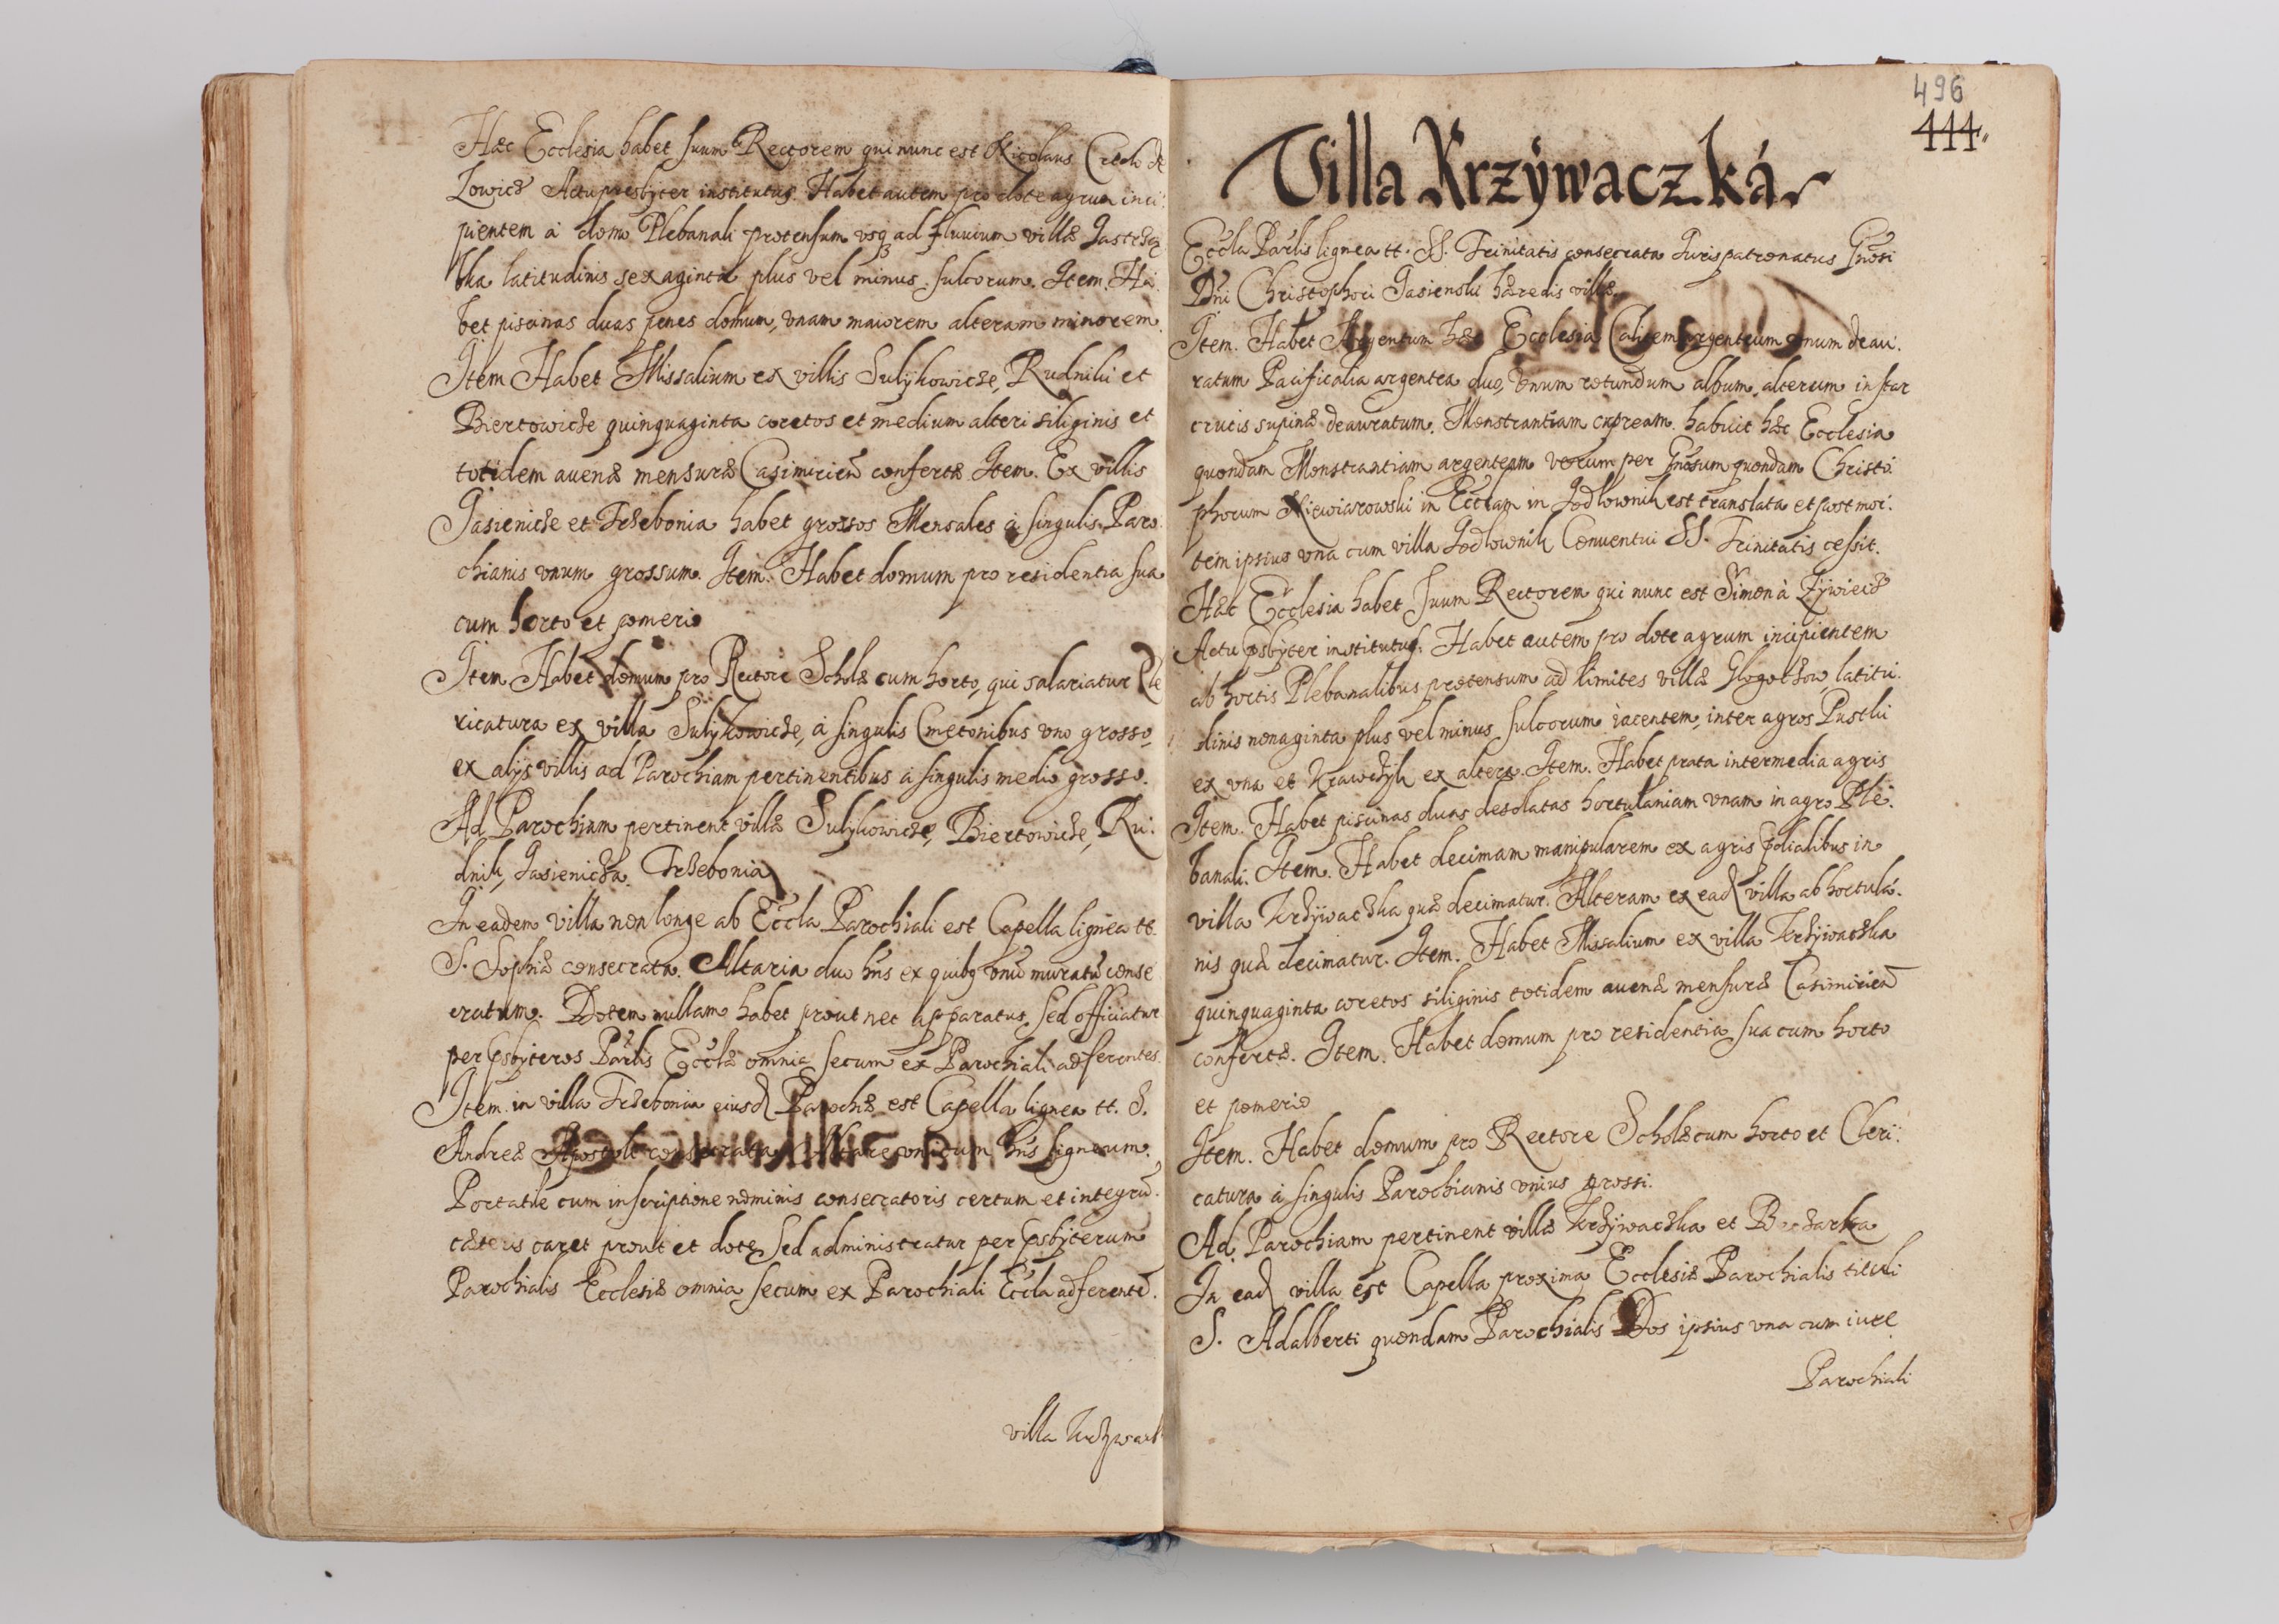 Haec Ecclesia habet suum Rectorem qui nunc est Nicolaus
Lowicz Actu presbyter institutus. Habet autem pro dote agrum inci:
pientem à domo Plebanali protensum vsq ad fluuium villae
latitudinis sexaginta plus vel minus sulcorum. Item. Ha:
bet piscinas duas penes domum, vnam maiorem alteram minorem.
Item Habet Missalium ex villis Sulykowicze, Rudniki et
Biertowicze quinquaginta coretos et medium alteri siliginis et
totidem auenae mensurae Casimirien confertae Item. Ex villis
Jasienicze et Trzebonia habet grossos Mensales à singulis Paro
chianis vnum grossum. Item. Habet domum pro residentia sua
cum horto et pomerio
Item Habet domum pro Rectore Scholae cum horto, qui salariatur Cle
ricatura ex villa Sulykowicze, à singulis Cmetonibus vno grosso,
ex alijs villis ad Parochiam pertinentibus à singulis medio grosso.
Ad Parochiam pertinent villae Sulykowicze, Biertowicze, Ru:
dnik, Jasienicza. Trzebonia
In eadem villa non longe ab Eccla Parochiali est Capella lignea tt.
S. Sophiae consecrata. Altaria duo hns ex quibq vnu muratu conse
cratum. Dotem nullam habet prout nec apparatus, sed officiatur
per psbyteros Parlis Ecclae omnia secum ex Parochiali adferentes
Item. in villa Trzebonia eiusd Parochiae est Capella lignea tt. S.
Andreae Apostoli consecrata Altare vnicum hns ligneum.
Portatile cum inscriptione nominis consecratoris certum et integru.
caeteris caret prout et dote, sed administratur per psbyterum
Parochialis Ecclesiae omnia secum ex Parochiali Eccla adferente.
villa Krzywack
496
444
Villa Krzywaczká
Eccla Parlis lignea tt. SS. Trinitatis consecrata Iuris patronatus Gnosi
Dni Christophori Jasienski haeredis villae.
Item. Habet Argentum haec Ecclesia Calicem argenteum vnum deau:
ratum Pacificalia argentea duo, vnum rotundum album, alterum instar
crucis supinae deauratum. Monstrantiam cupream. habuit haec Ecclesia
quondam Monstrantiam argenteam verum per Gnosum quondam Christo
phorum Niewiarowski in Ecclam in Jodlownik est translata et post mor:
tem ipsius vna cum villa Jodlownik Conuentui SS. Trinitatis cessit.
Haec Ecclesia habet suum Rectorem qui nunc est Simon à Zywiecz
Actu psbyter institutus. Habet autem pro dote agrum incipientem
ab hortis Plebanalibus protensum ad limites villae Glogoczow, latitu:
dinis nonaginta plus vel minus sulcorum iacentem, inter agros Pustki
ex vna et Krawczyk ex altera. Item. Habet prata intermedia agris
Item. Habet piscinas duas desolatas hortulaniam vnam in agro Ple:
banali. Item. Habet decimam manipularem ex agris pdialibus in
villa Krzywaczka quae decimatur. Alteram ex ead villa ab hortula:
nis quae decimatur. Item. Habet Missalium ex villa Krzywaczka
quinquaginta coretos siliginis totidem auenae mensurae Casimirien
confertae. Item. Habet domum pro residentia sua cum horto
et pomerio
Item. Habet domum pro Rectore Scholae cum horto et Cleri:
catura à singulis Parochianis vnius grossi.
Ad Parochiam pertinent villae Krzywaczka et
In ead villa est Capella proxima Ecclesiae Parochialis tituli
S. Adalberti quondam Parochialis Dos ipsius vna cum iure
Parochiali